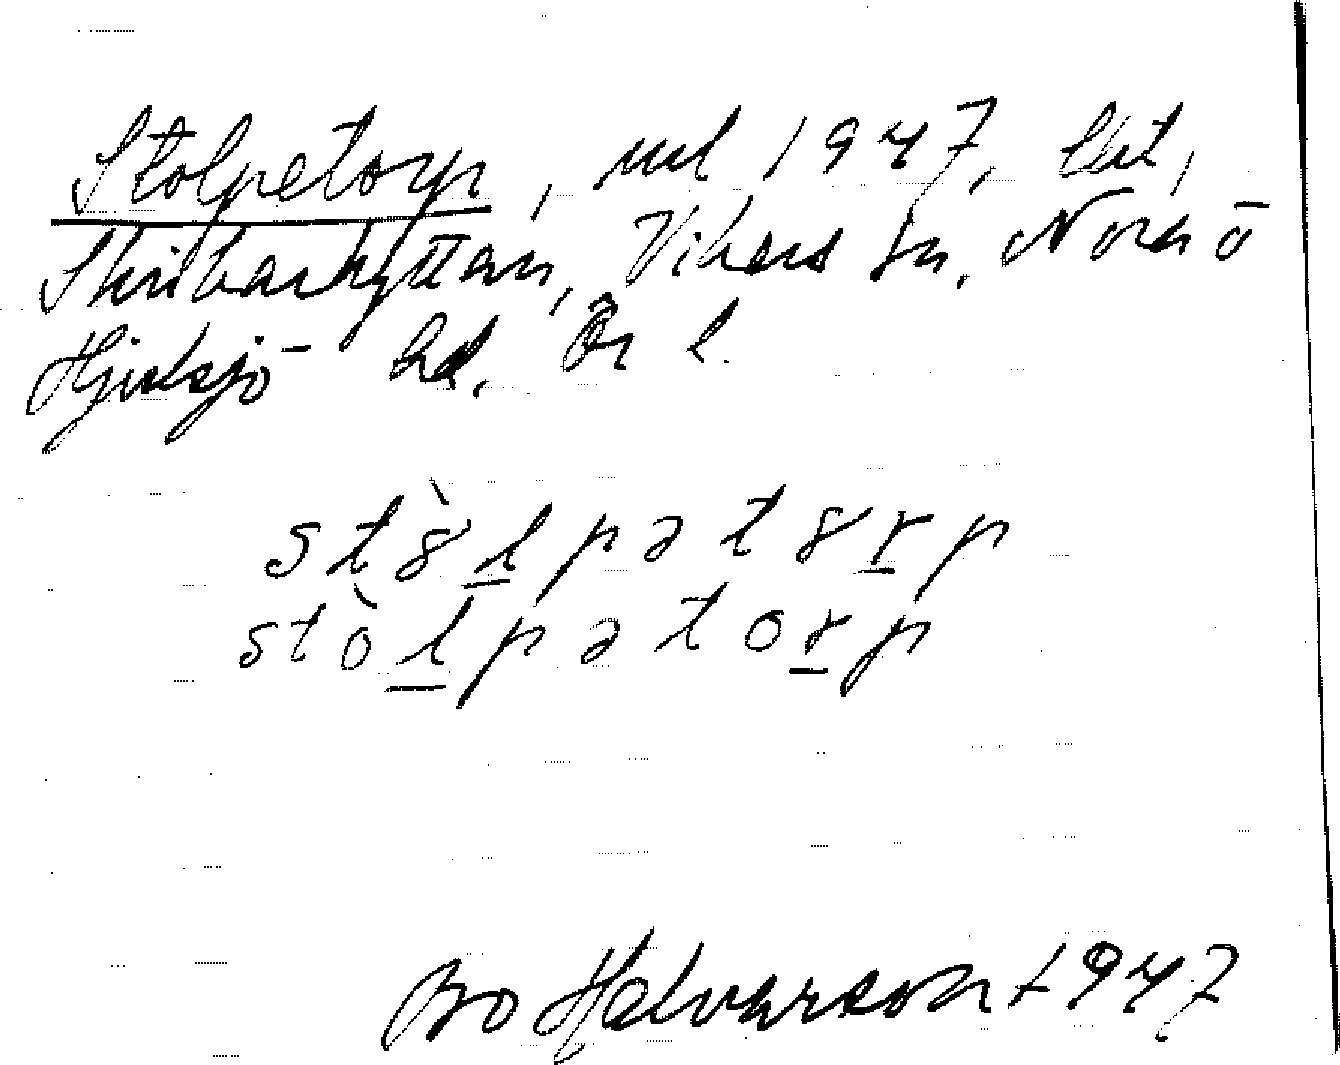 Stolpetorp, uul 1947, lht,
Skrikarhyttan, Vikers sn, Nora o
Hjulsjö hd, Ör l.
stò̤lpətȣrp
stòlpətorp
Bo Halvarson 1947